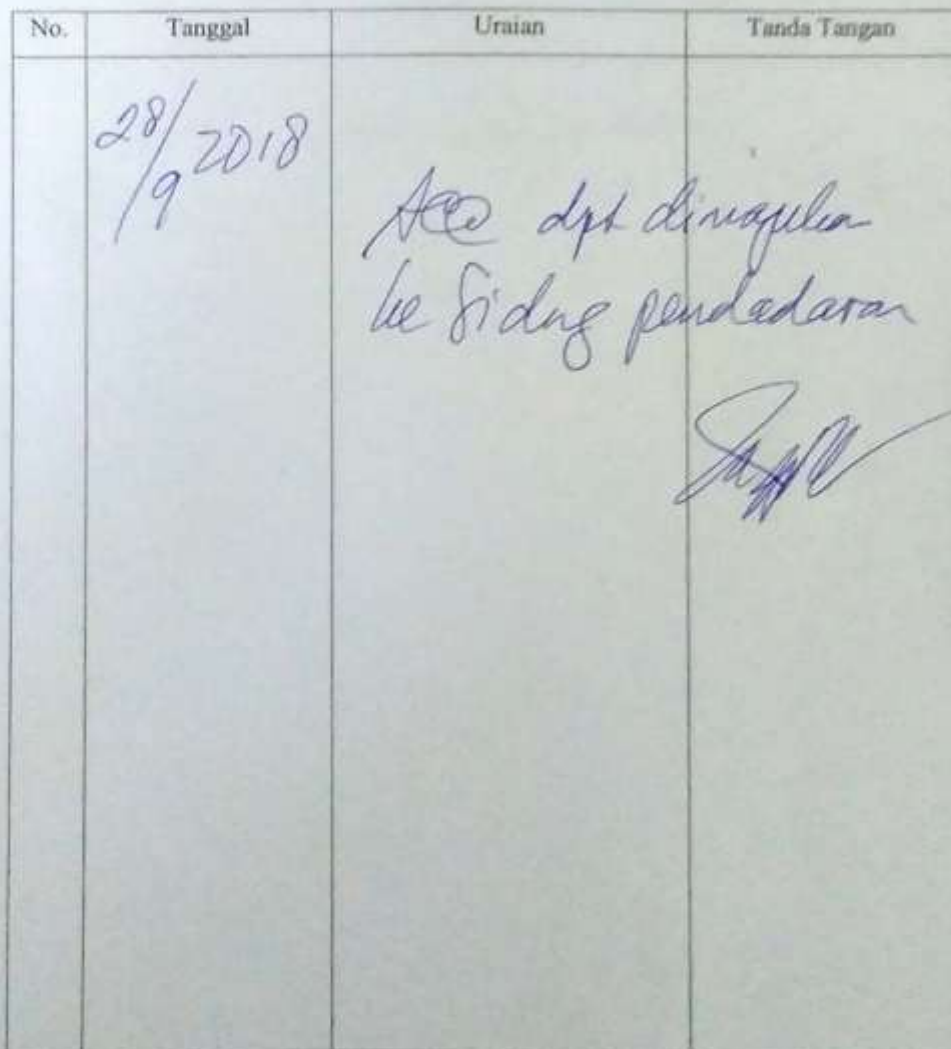 No. Tanggal Uraian Tanda Tangan
28/9 2018
Acc dpt dimajukan
ke Sidang pendadaran